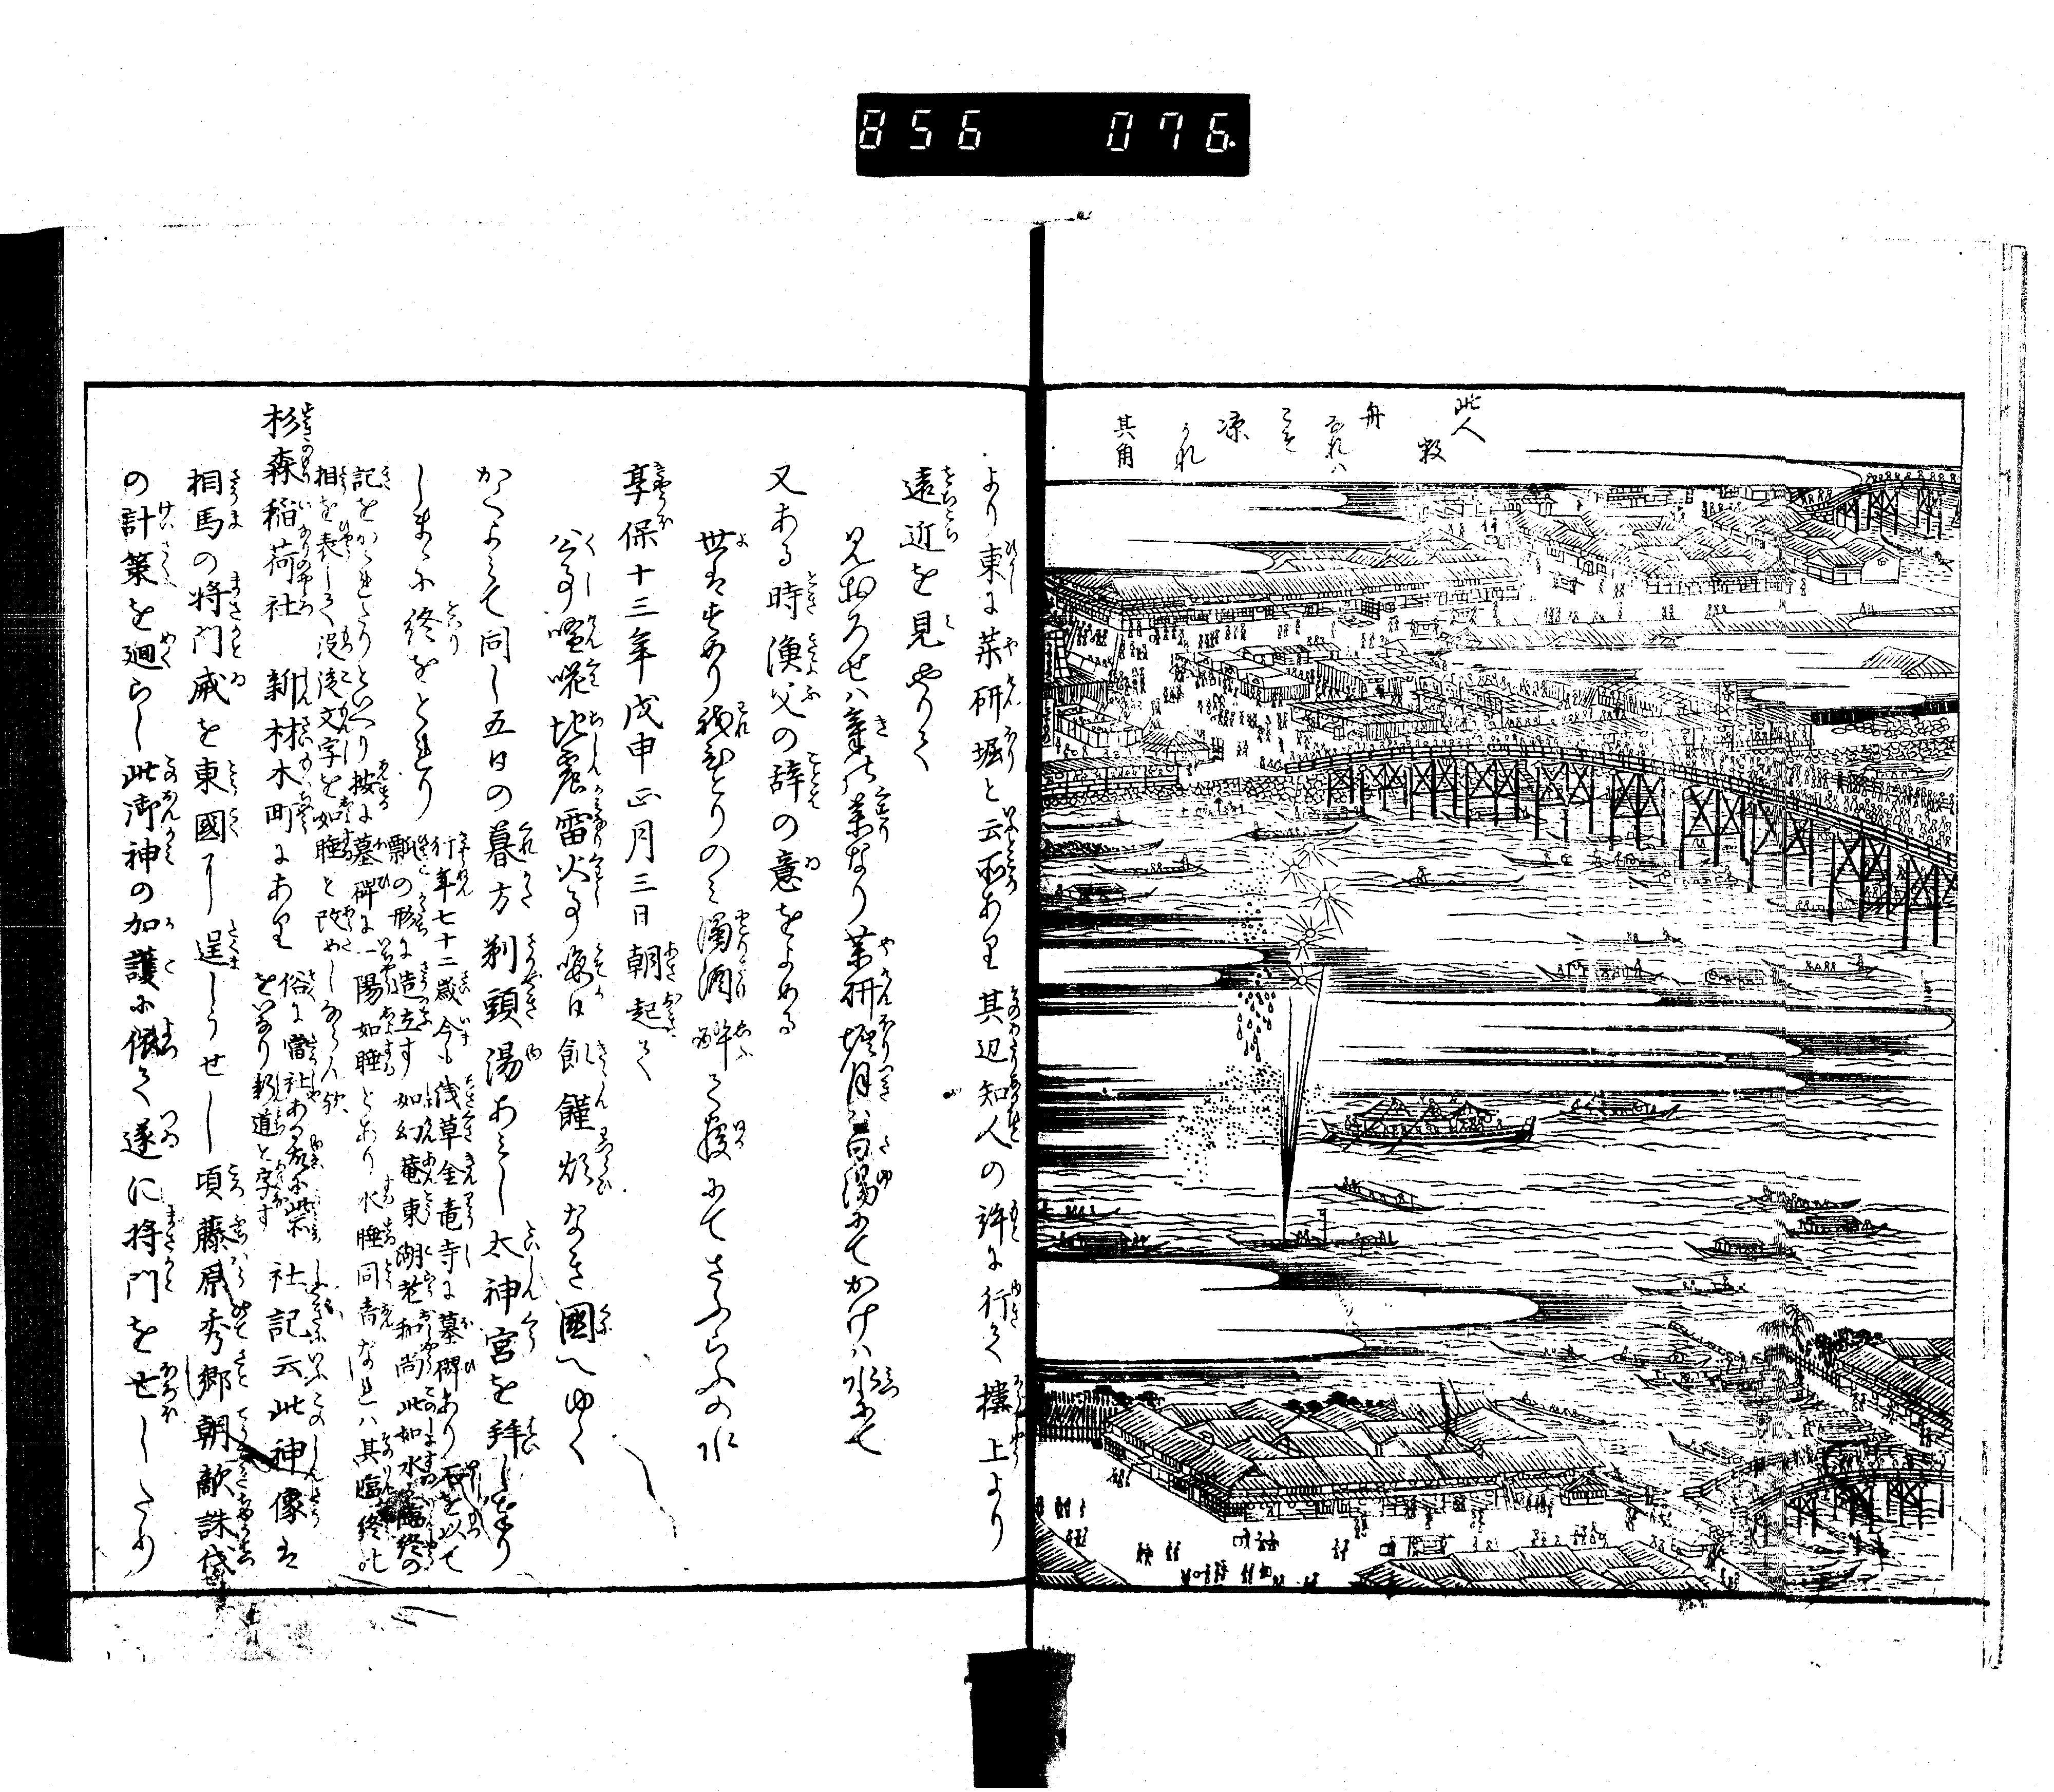 856 076
此人
数
舟
なれハ
こそ
凉
うれ
其角
より東に薬研堀と云所あり其辺知人の許に行て樓上より
遠近を見やりて
見おろせハ
又ある時漁父の辞の意をよめる
世はすめり我ひとりのミ濁酒酔て寝にてさふらふの水
享保十三年戊申正月三日朝起て
公事喧嘩地震雷火事晦日飢饉煩なき國へゆく
かくよミて同し五日の暮方剃頭湯あミし太神宮を拝し
しまゝに終をとれり
行年七十二歳今も浅草金竜寺に墓碑あり石を以て
瓢の形に造立す如幻庵東湖老和尚此如水臨終の
記をかゝれたりといへり按に墓碑に一陽如睡とあり水睡同音なれハ其臨終の
相を表して没後文字を如睡と改めしならん歟
杉森稲荷社 新材木町にあり
俗に當社ある故に此所
をいなり新道と字す
社記云此神像は
相馬の将門威を東國に逞しうせし頃藤原秀郷朝敵誅伐
の計策を廻らし此御神の加護に依て遂に将門を亡したり